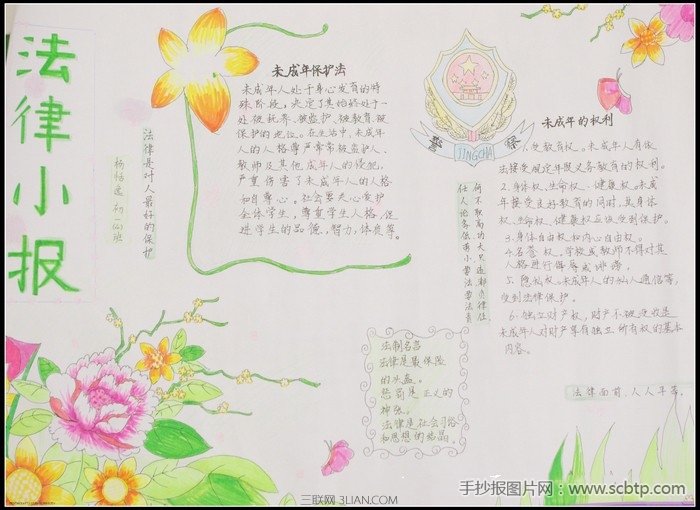 法律小报
法律是对人最好的保护
未成年保护法
未成年人处于身心发育的特
殊阶段，决定了其始终处于一
处被抚养、被监护、被教育、被
保护的地位。在生活中，未成年
人的人格尊严常常被监护人、
教师及其他成年人的侵犯，
严重伤害了未成年人的人格
和自尊心。社会要关心爱护
全体学生，尊重学生人格，促
进学生的品德，智力，体质等。
警察
JINGCHA
未成年的权利
1、受教育权。未成年人有依
法接受规定年限义务教育的权利。
2、身体权、生命权、健康权。未成
年接受良好教育的同时，其身体
权、生命权、健康权应该受到保护。
3、身体自由权和内心自由权。
4、名誉权。学校或教师不得对其
人格进行侮辱或诽谤。
5、隐私权。未成年人的私人通信等，
受到法律保护。
6、独立财产权，财产不被没收是
未成年人对财产享有独立所有权的基本
内容。
法制名言
法律是最保险
的头盔。
惩罚是正义的
伸张。
法律是社会习俗
和思想的结晶。
法律面前，人人平等。
三联网 3LIAN.COM
手抄报图片网：www.scbtp.com